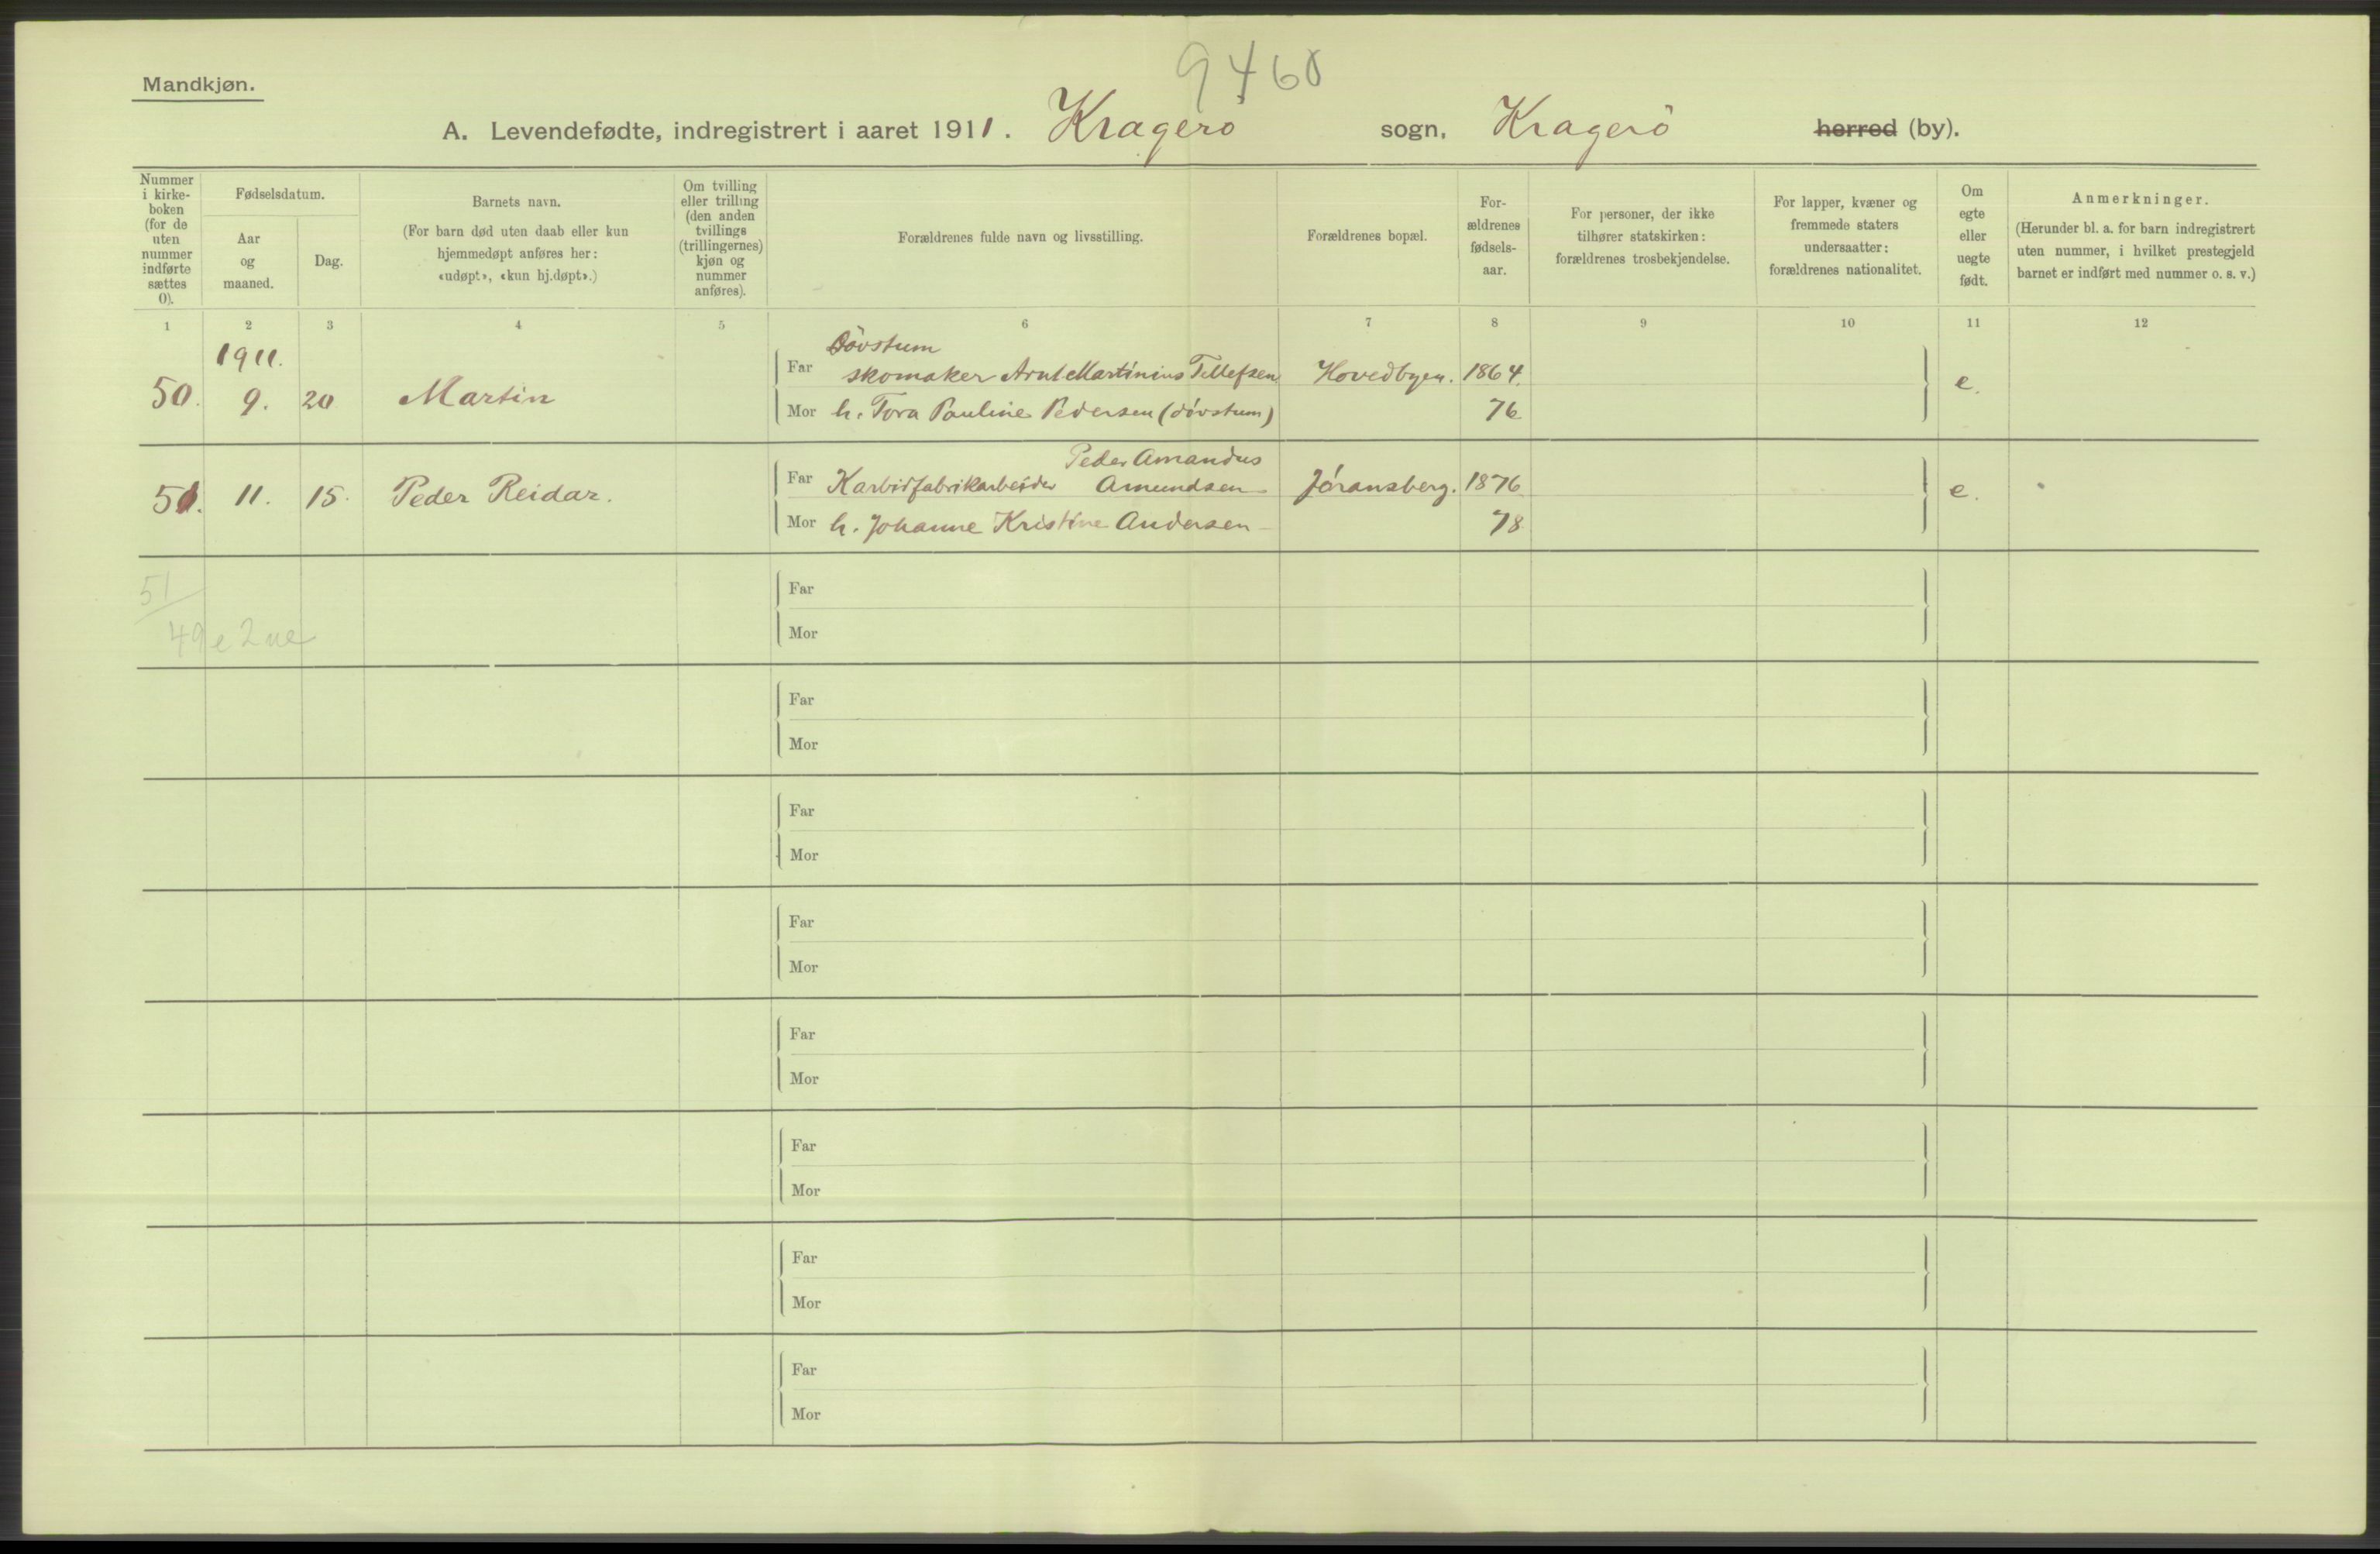 9460
Mandkjøn.
A. Levendefødte, indregistrert i aaret 1911. Kragerö sogn, Kragerö herred (by).
Nummer i kirke-boken (for de uten nummer indførte sættes 0).
Fødselsdatum.
Aar og maaned.
Dag.
Barnets navn.
(For barn død uten daab eller kun hjemmedøpt anføres her: «udøpt», «kun hj.døpt».)
Om tvilling eller trilling (den anden tvillings (trillingernes) kjøn og nummer anføres).
Forældrenes fulde navn og livsstilling.
Forældrenes bopæl.
For-ældrenes fødsels-aar.
For personer, der ikke tilhører statskirken: forældrenes trosbekjendelse.
For lapper, kvæner og fremmede staters undersaatter: forældrenes nationalitet.
Om egte eller uegte født.
Anmerkninger.
(Herunder bl. a. for barn indregistrert uten nummer, i hvilket prestegjeld barnet er indført med nummer o. s. v.)
1 2 3 4 5 6 7 8 9 10 11 12
1911.
Dövstum
50. 9. 20 Martin Far skomaker Arnt Martinius Tellefsen Hovedbyen. 1864. e.
Mor h. Tora Pauline Pedersen (dövstum) 76
Peder Amandus
51. 11. 15. Peder Reidar. Far Karbidfabrikarbeider Amundsen Jöransberg. 1876 e.
Mor h. Johanne Kristine Andersen 78
51
49 e 2 ue
Far
Mor
Far
Mor
Far
Mor
Far
Mor
Far
Mor
Far
Mor
Far
Mor
Far
Mor